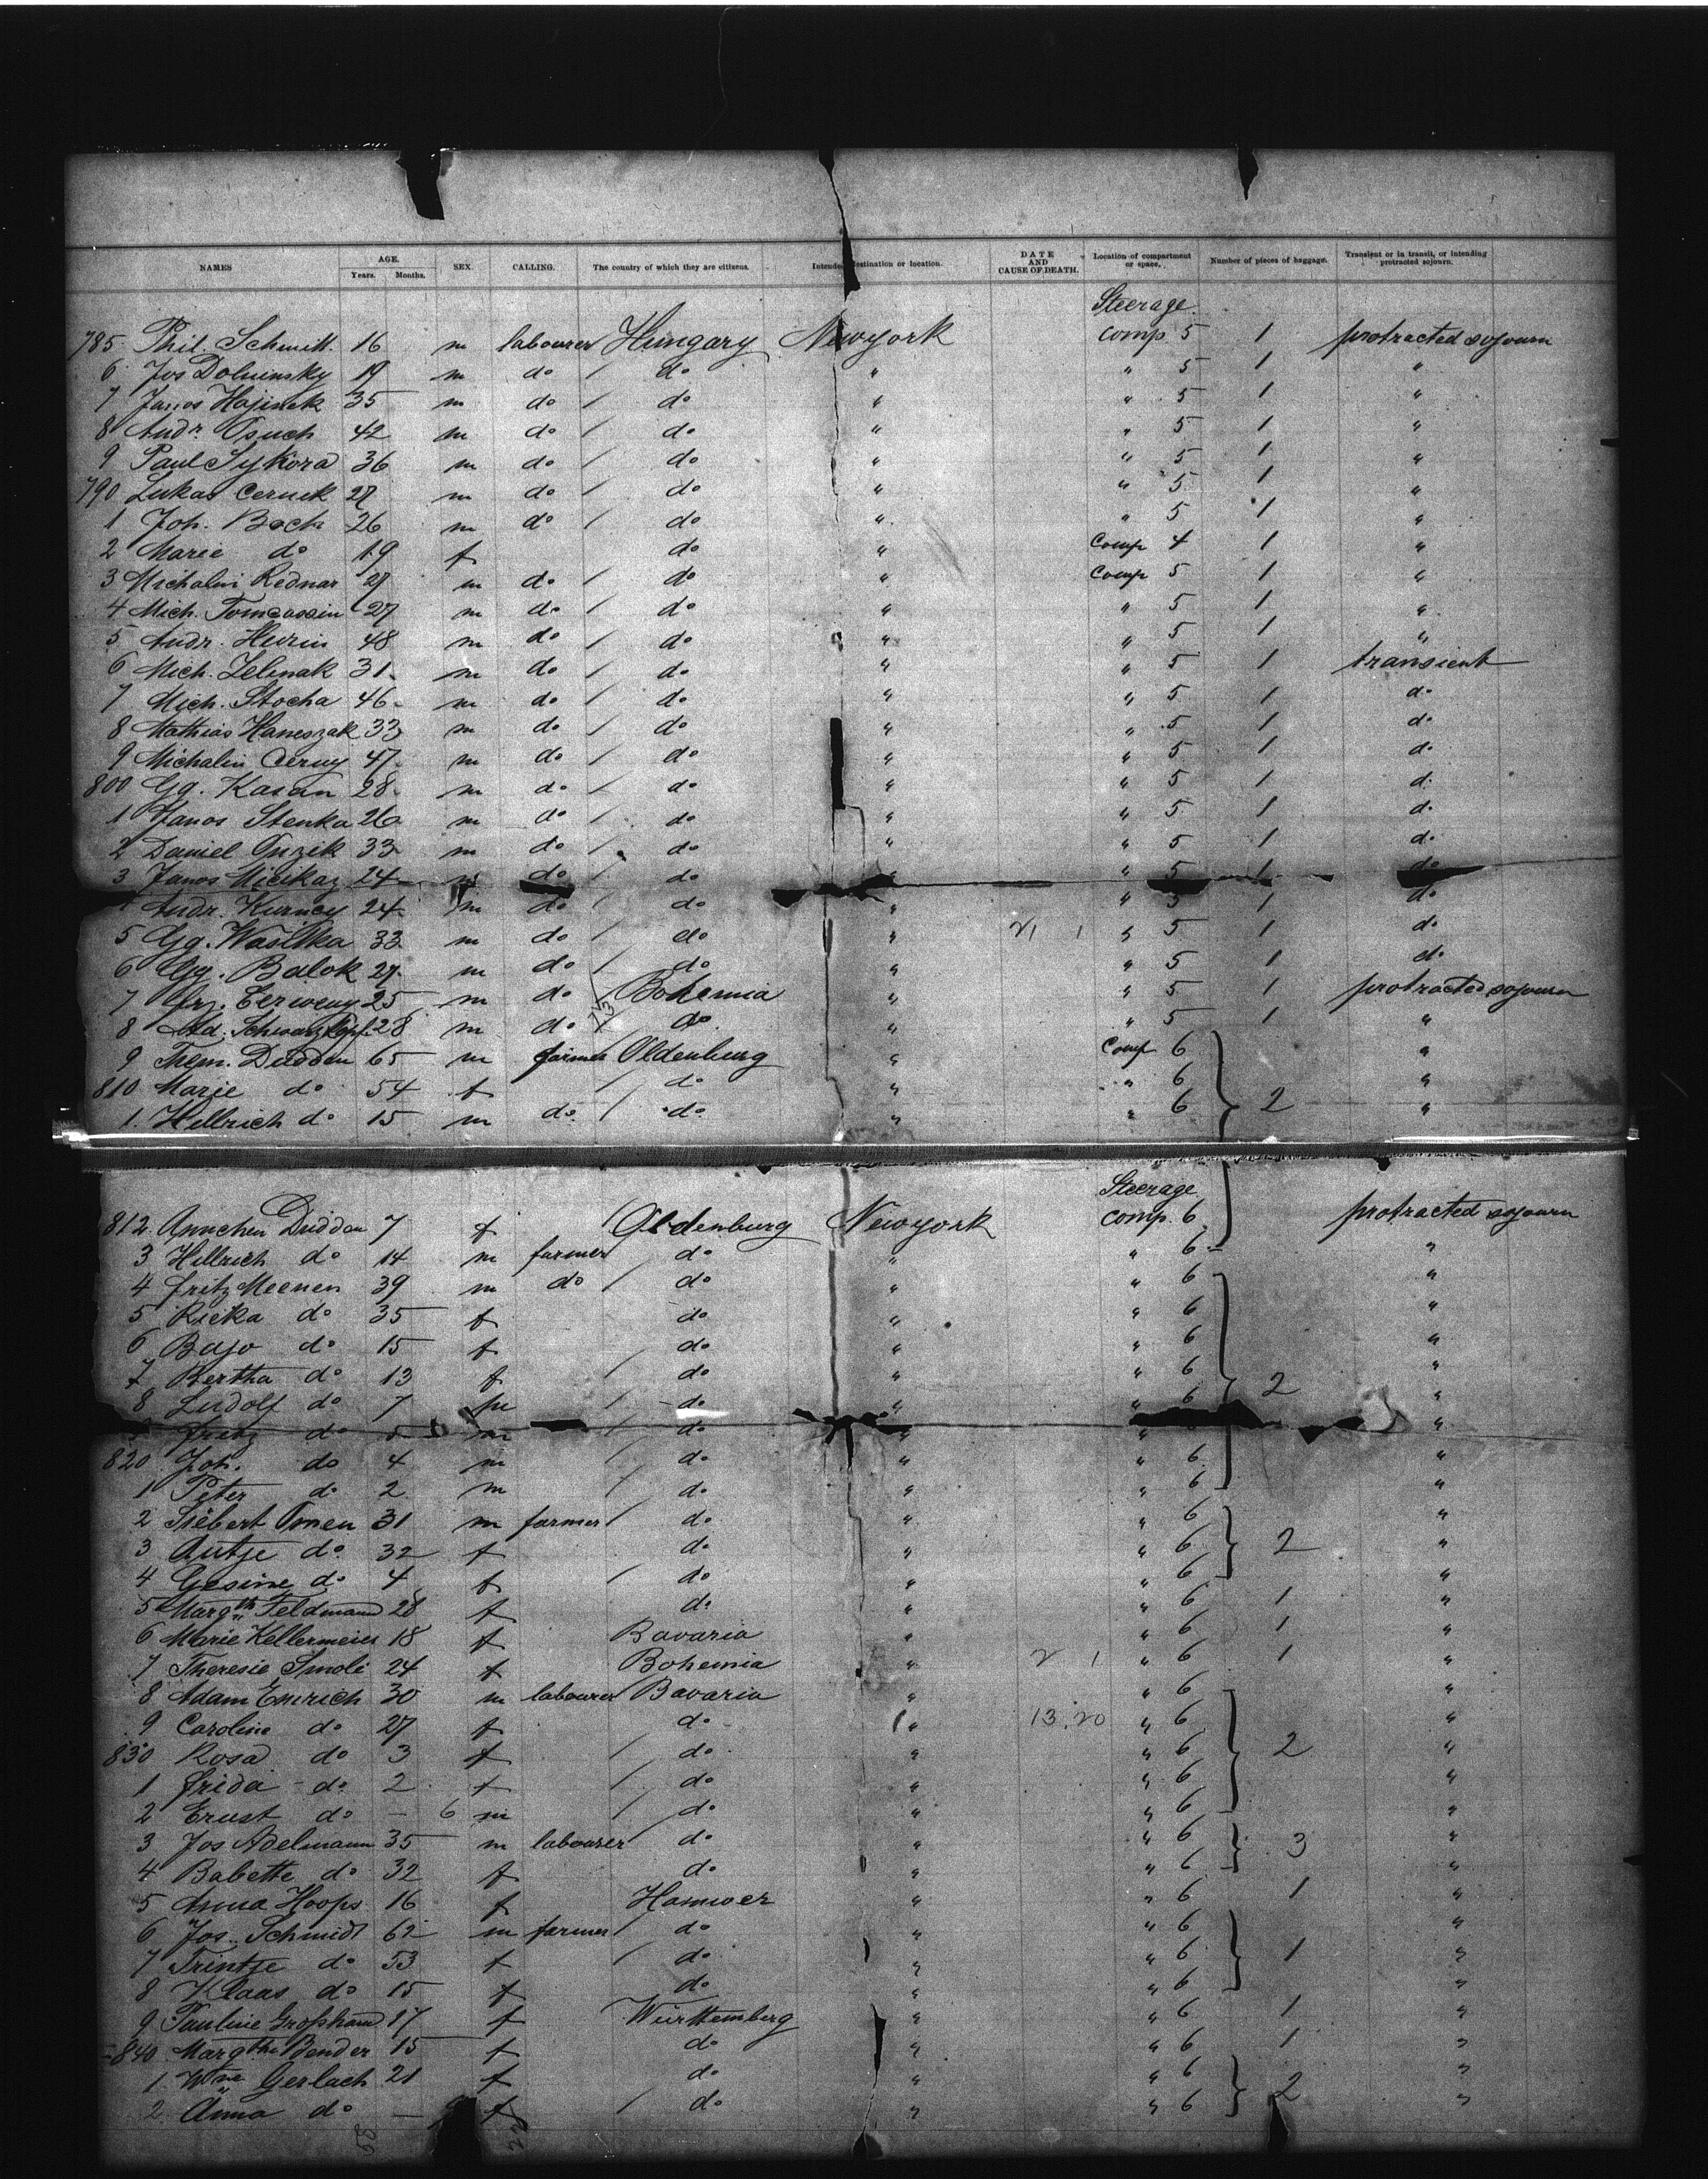 NAMES AGE. Years. Months. SEX. CALLING. The country of which they are citizens. Intended destination or location. DATE AND CAUSE OF DEATH. Location of compartment or space. Number of pieces of baggage. Transient or in transit, or intending protracted sojourn.
Steerage
785 Phil. Schmitt 16 m labourer Hungary Newyork comp 5 1 protracted sojourn
6 Jos Doluinsky 19 m do / do " " 5 1 "
7 Janos Hajinek 35 m do / do " " 5 1 "
8 Andr. Osuch 42 m do / do " " 5 1 "
9 Paul Sykora 36 m do / do " " 5 1 "
790 Lukas Cernek 27 m do / do " " 5 1 "
1 Joh. Boch 26 m do / do " " 5 1 "
2 Marie do 19 f do " Comp 4 1 "
3 Michalin Rednar 27 m do / do " Comp 5 1 "
4 Mich. 27 m do / do " " 5 1 "
5 Andr. Hurin 48 m do / do " " 5 1 "
6 Mich. Zelenak 31 m do / do " " 5 1 transient
7 Mich. Stocha 46 m do / do " " 5 1 do
8 Mathias Haneszak 33 m do / do " " 5 1 do
9 Michalin Cerny 47 m do / do " " 5 1 do
800 Gg. Kasan 28 m do / do " " 5 1 do
1 Janos Stenka 26 m do / do " " 5 1 do
2 Daniel 33 m do / do " " 5 1 do
3 Janos Micikaz 24 do / do " " 5 1 do
Andr. Kurney 24 m do / do " " 5 1 do
5 Gg. Wasilka 33 m do / do " 21 1 " 5 1 do
6 Gg. Balok 27 m do / do " " 5 1 do
7 Frz. Cerweny 25 m do Bohemia " " 5 1 protracted sojourn
8 Ad. Schwarzkopf 28 m do do " " 5 1 "
9 Duddon 65 m farmer Oldenburg " Comp 6 "
810 Marie do 54 f / do " " 6 "
1. Hellrich do 15 m do / do " " 6 2 "
Steerage
812 Annchen Duddon 7 f Oldenburg Newyork comp. 6 protracted sojourn
3 Hellrich do 14 m farmer do " " 6 "
4 Fritz Meenen 39 m do / do " " 6 "
5 Ricka do 35 f do " " 6 "
6 Bajo do 15 f do " " 6 "
7 Bertha do 13 f / do " " 6 2 "
8 Ludolf do 7 m / do " " 6 "
Fritz do m / do " " "
820 Joh. do 4 m / do " " 6 "
1 Peter do 2 m / do " " 6 "
2 Siebert Onnen 31 m farmer / do " " 6 "
3 Antje do 32 f do " " 6 2 "
4 Gesine do 4 f / do " " 6 "
5 Margth Feldmann 28 f do " " 6 1 "
6 Marie Kellermeier 18 f Bavaria " " 6 1 "
7 Theresie Smoli 24 f Bohemia " 2 1 " 6 1 "
8 Adam Emrich 30 m labourer Bavaria " " 6 "
9 Caroline do 27 f do " 13.20 " 6 "
830 Rosa do 3 f / do " " 6 2 "
1 Frida do 2 f / do " " 6 "
2 Ernst do - 6 m / do " " 6 "
3 Jos Adelmann 35 m labourer do " " 6 3 "
4 Babette do 32 f do " " 6 "
5 Anna Hoops 16 f Hannover " " 6 1 "
6 Jos. Schmidt 62 m farmer / do " " 6 "
7 Trintje do 53 f / do " " 6 1 "
8 Klaas do 15 f do " " 6 "
9 Pauline Großhans 17 f Württemberg " " 6 1 "
840 Margthe Bender 15 f do " " 6 1 "
1 Wne Gerlach 21 f do " " 6 2 "
2 Anna do - f / do " " 6 "